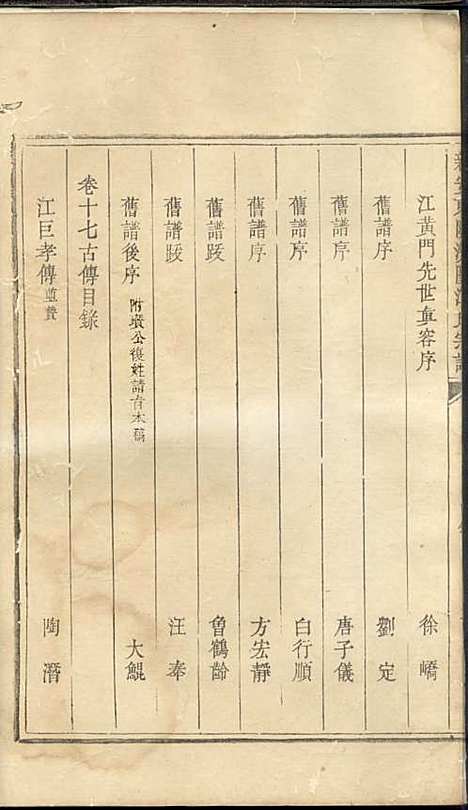 江黃門先世真容序 徐嶠
舊譜序 劉定
舊譜序 唐子儀
舊譜序 白行順
舊譜序 方宏靜
舊譜跋 魯鶴齡
舊譜跋 汪奉
舊譜後序 附璸公復姓請旨本稿 大鯤
卷十七古傳目錄
江巨孝傳並贊 陶潛